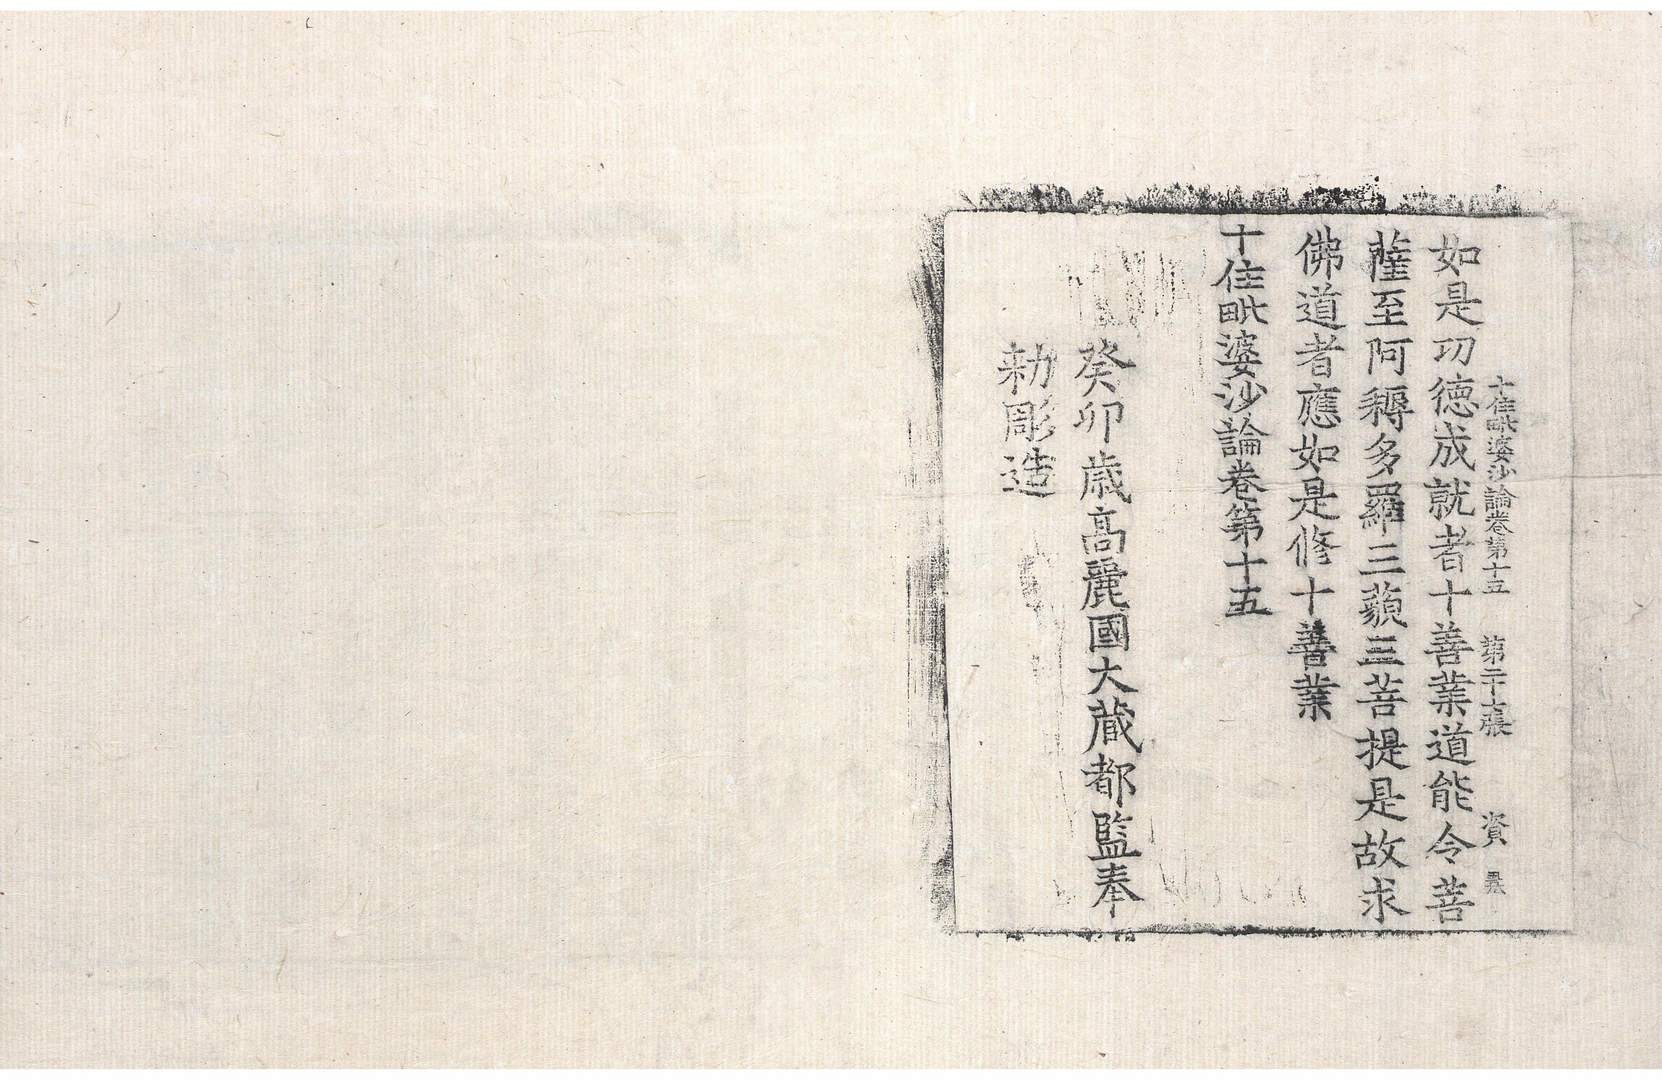 十住毗婆沙論卷第十五 第二十七張 資
如是功德成就者十善業道能令菩
薩至阿耨多羅三藐三菩提是故求
佛道者應如是修十善業
十住毗婆沙論卷第十五
癸卯歲高麗國大藏都監奉
勅彫造